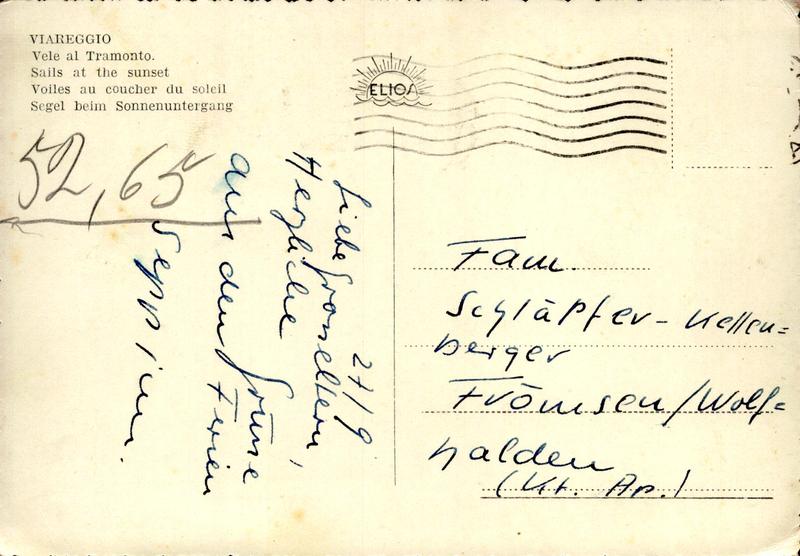 VIAREGGIO
Vele al Tramonto.
Sails at the sunset
Voiles au coucher du soleil
Segel beim Sonnenuntergang
ELIOS
52,65
27/9
Liebe Grosseltern,
Herzliche Grüsse
aus den Ferien
Seppli
Fam.
Schläpfer-Kellen=
berger
Frömsen/Wolf=
halden
(Kt. Ap.)